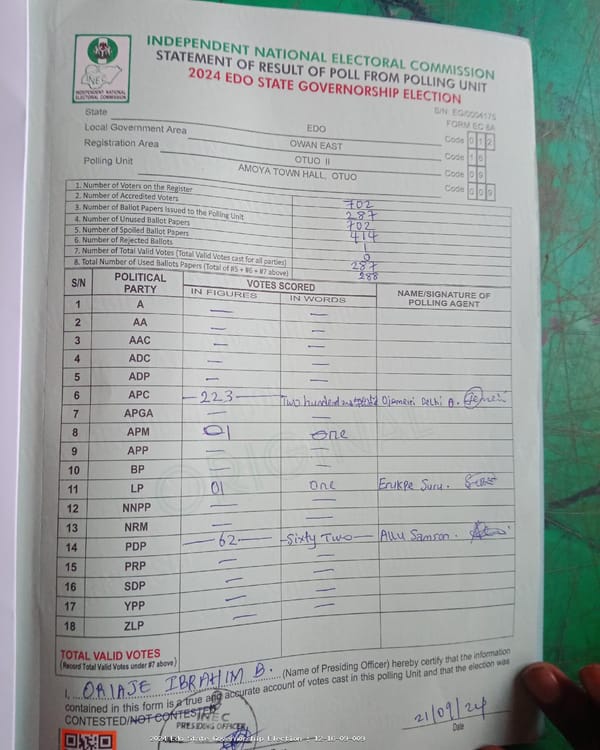 INDEPENDENT NATIONAL ELECTORAL COMMISSION
STATEMENT OF RESULT OF POLL FROM POLLING UNIT
2024 EDO STATE GOVERNORSHIP ELECTION
INEC
INDEPENDENT NATIONAL ELECTORAL COMMISSION
S/N: EG/0004175
FORM EC 8A
State EDO Code 0 1 2
Local Government Area OWAN EAST Code 1 6
Registration Area OTUO II Code 0 9
Polling Unit AMOYA TOWN HALL, OTUO Code 0 0 9
1. Number of Voters on the Register 702
2. Number of Accredited Voters 287
3. Number of Ballot Papers Issued to the Polling Unit 702
4. Number of Unused Ballot Papers 414
5. Number of Spoiled Ballot Papers 1
6. Number of Rejected Ballots 0
7. Number of Total Valid Votes (Total Valid Votes cast for all parties) 287
8. Total Number of Used Ballots Papers (Total of #5 + #6 + #7 above) 288
S/N POLITICAL PARTY VOTES SCORED NAME/SIGNATURE OF POLLING AGENT
IN FIGURES IN WORDS
1 A — —
2 AA — —
3 AAC — —
4 ADC — —
5 ADP — —
6 APC —223— Two hundred Ojemeiri Delhi A.
7 APGA — —
8 APM 01 one
9 APP — —
10 BP — —
11 LP 01 one Erukpe Suru.
12 NNPP — —
13 NRM — —
14 PDP —62— —Sixty Two— Allu Samson.
15 PRP — —
16 SDP — —
17 YPP — —
18 ZLP — —
TOTAL VALID VOTES
(Record Total Valid Votes under #7 above)
I, ORIAJE IBRAHIM B. (Name of Presiding Officer) hereby certify that the information
contained in this form is a true and accurate account of votes cast in this polling Unit and that the election was
CONTESTED/NOT CONTESTED
INEC
PRESIDING OFFICER
21/09/24
Date
2024 Edo State Governorship Election - 12-16-09-009